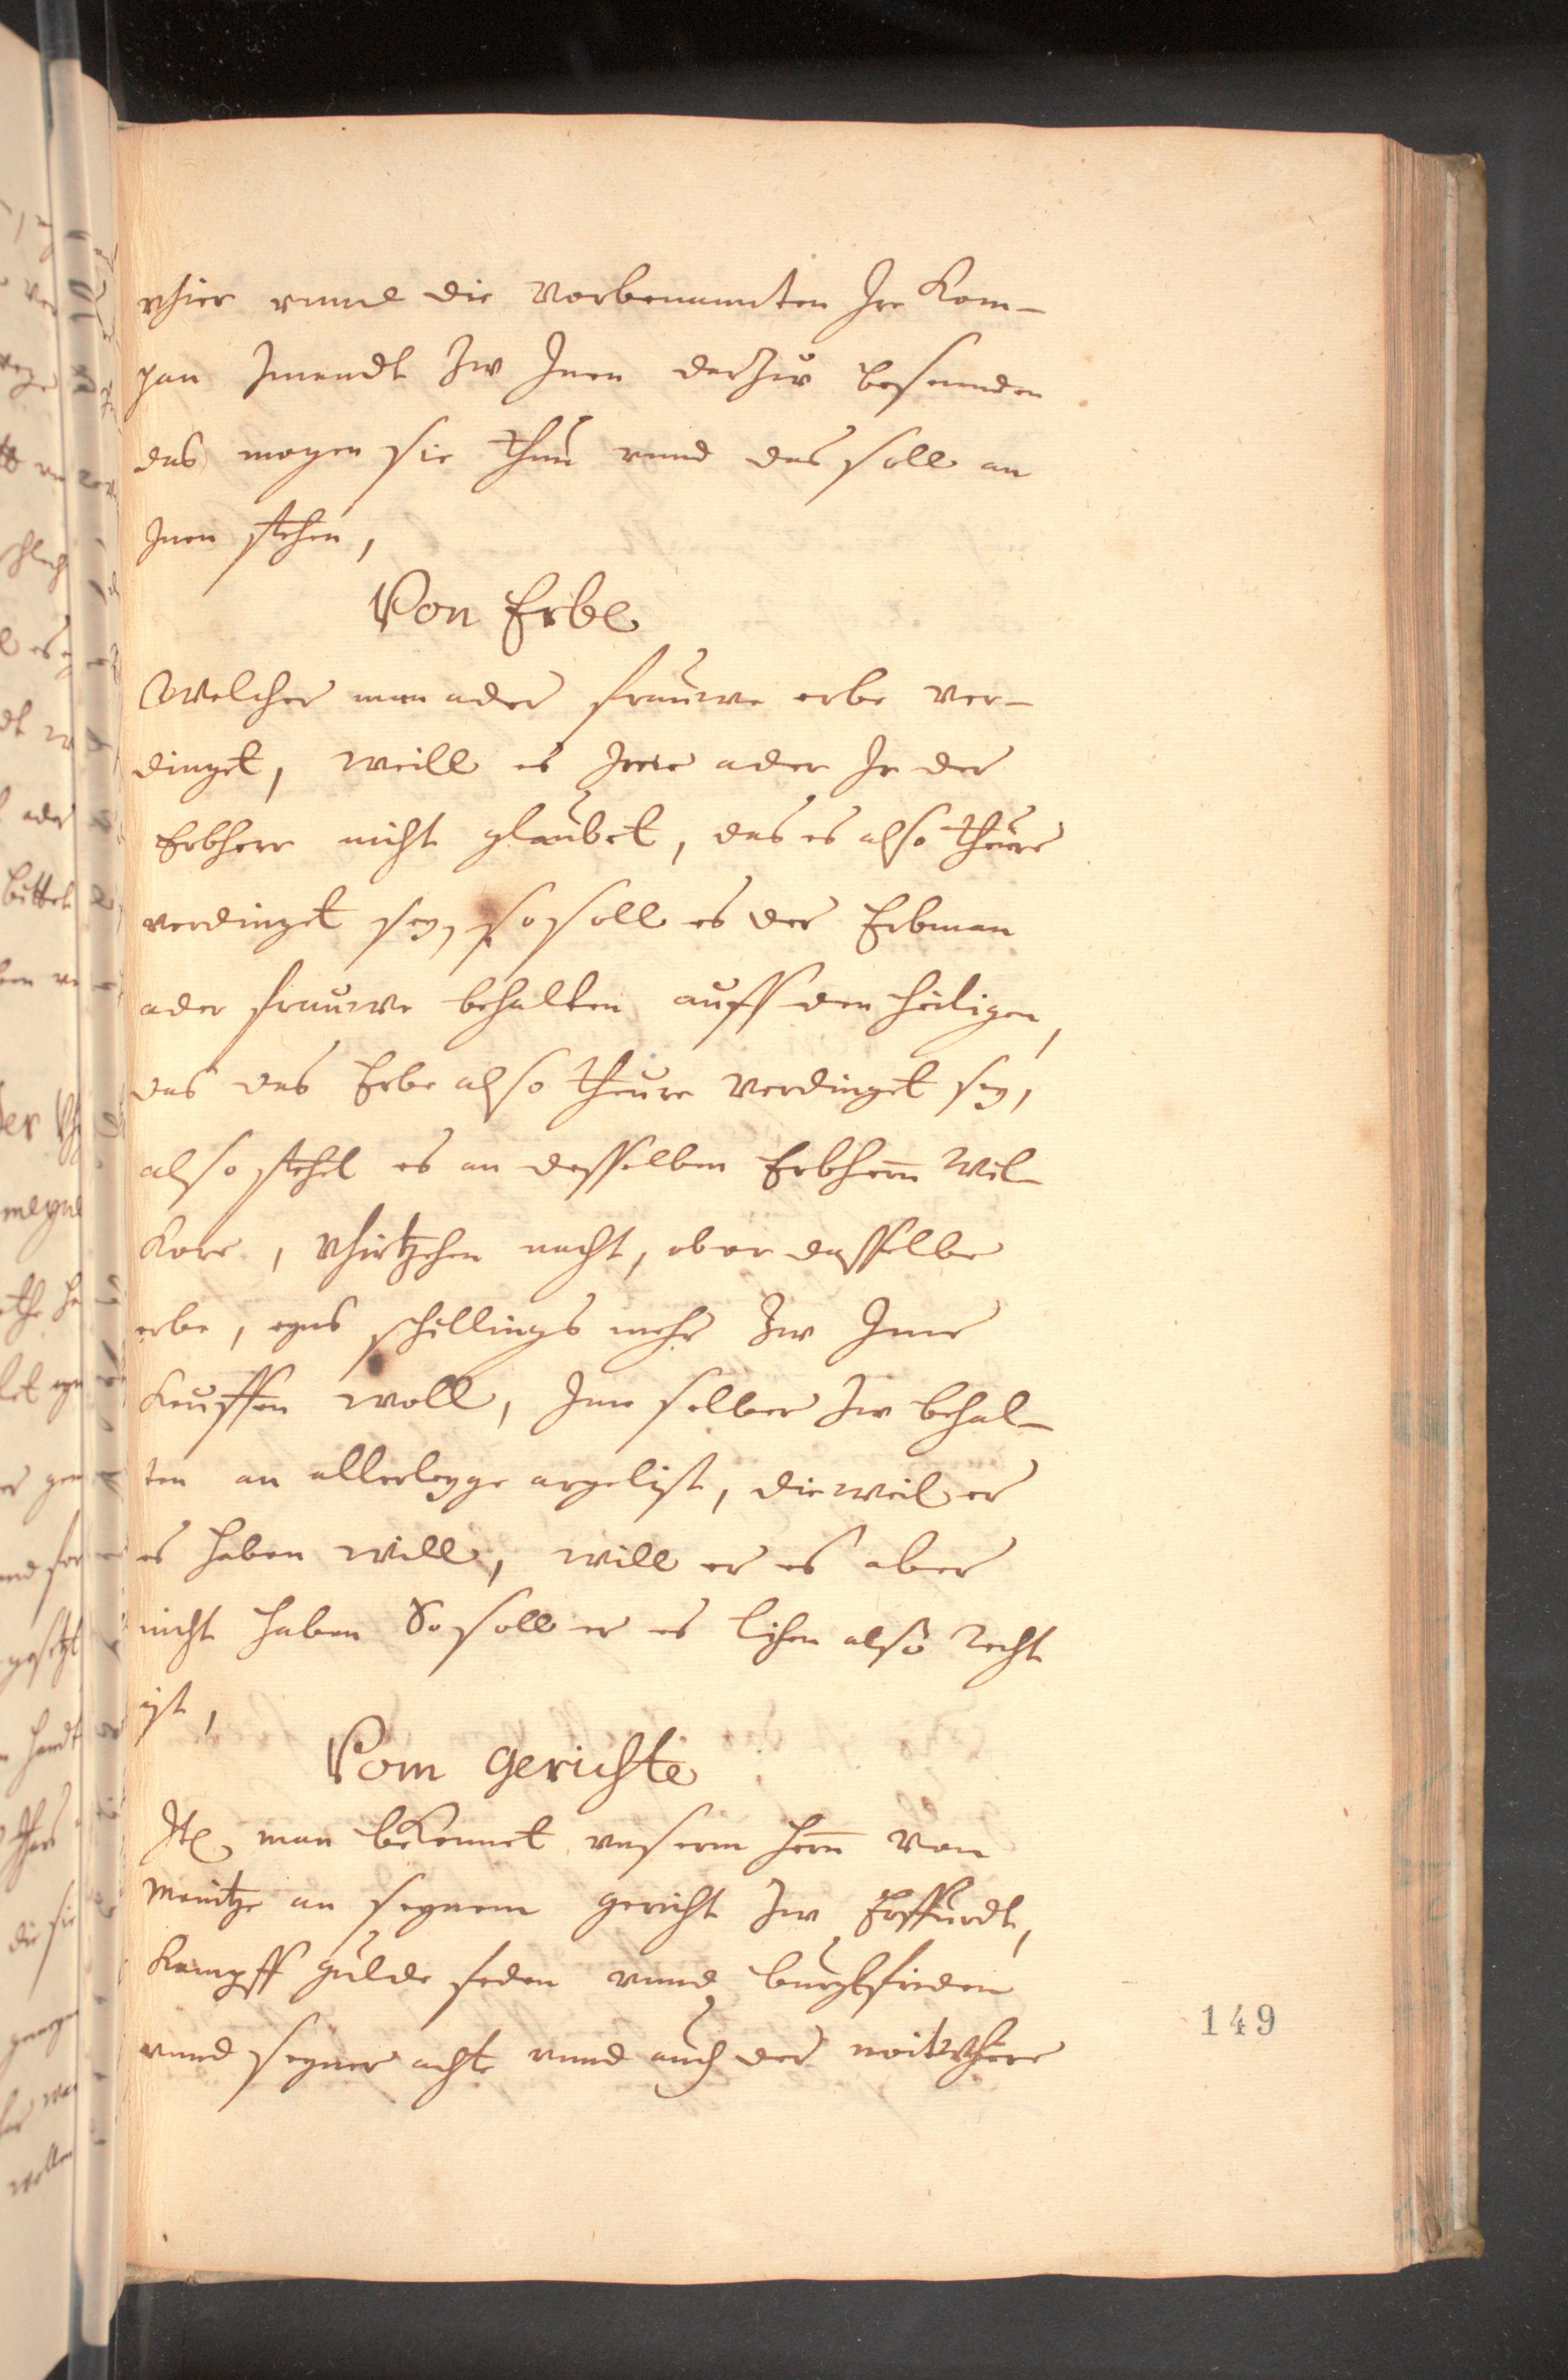 vhier vnnd die vorbenannten Ire Kom-
pan Imandt Zw Inen darZw besennden
das mogen sie thun vnnd das soll an
Inen stehen,
Von Erbe
Welcher man ader frauwe erbe ver-
dinget, weill es Ime ader Ir der
Erbherr nicht glaubet, das es also theure
verdinget sey, so soll es der Erbman
ader frauwe behalten auff den heiligen,
das das Erbe also theure verdinget sey,
also stehet es an desselben Erbhern Wil-
kore, vhirtzehen nacht, ob er dasselbe
erbe, eyns schillings mehr Zw Ime
keuffen woll, Ime selber Zw behal-
ten an allerleyge argelist, die weil er
es haben will, will er es aber
nicht haben So soll er es lihen also Recht
ist,
Vom gerichte
It man bekennet vnserm hern von
Meintze an seynem gericht Zw Erffurdt,
Kampff hulde feden vnnd burgkfrieden
vnnd seyner achte vnnd auch der
149